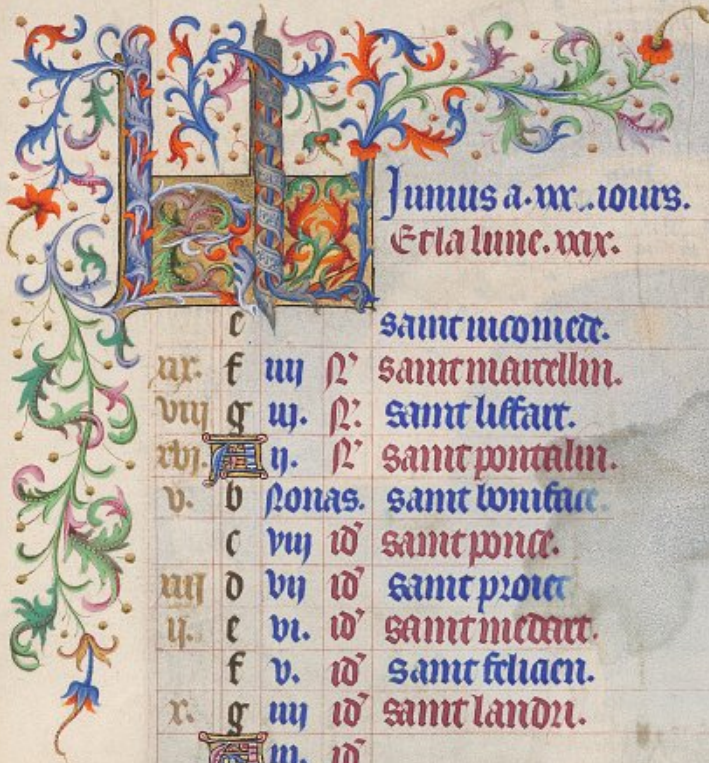 KL Junius a .xxx. iours.
Et la lune .xxix.
e saint nicomede.
xix. f iiii N' saint marcellin.
viii g iii. N' saint liffart.
xvi. A ii. N' saint pontalin.
v. b Nonas. saint boniface.
c viii id' saint ponce.
xiii d vii id' saint proiect
ii. e vi. id' saint medart.
f v. id' saint felicien.
x. g iiii id' saint landri.
A iii. id'